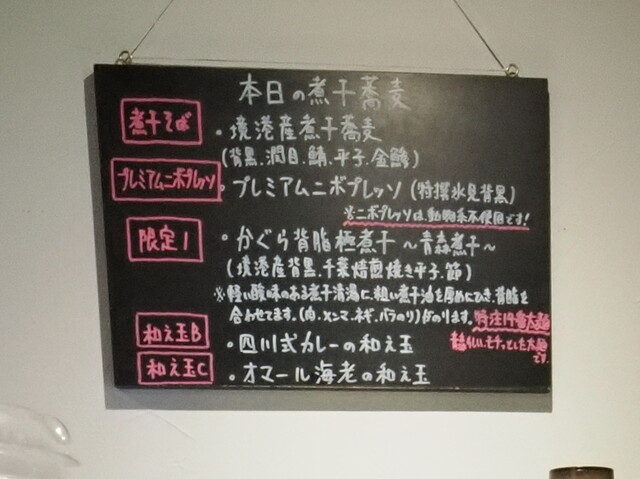 本日の煮干蕎麦
煮干そば
・境港産煮干蕎麦
(背黒.潤目.鯖.平子.金鯵)
プレミアムニボプレッソ
・プレミアムニボプレッソ (特撰氷見背黒)
※ニボプレッソは、動物系不使用です!
限定1
・かぐら背脂極煮干～青森煮干～
(境港産背黒.千葉焙煎焼き平子.節)
※軽い酸味のある煮干清湯に、粗い煮干油を厚めにひき、背脂を
合わせてます。(肉.メンマ.ネギ.バラのり)がのります。
特注14番太麺
幅広い、モチッとした太麺
です。
和え玉B
・四川式カレーの和え玉
和え玉C
・オマール海老の和え玉